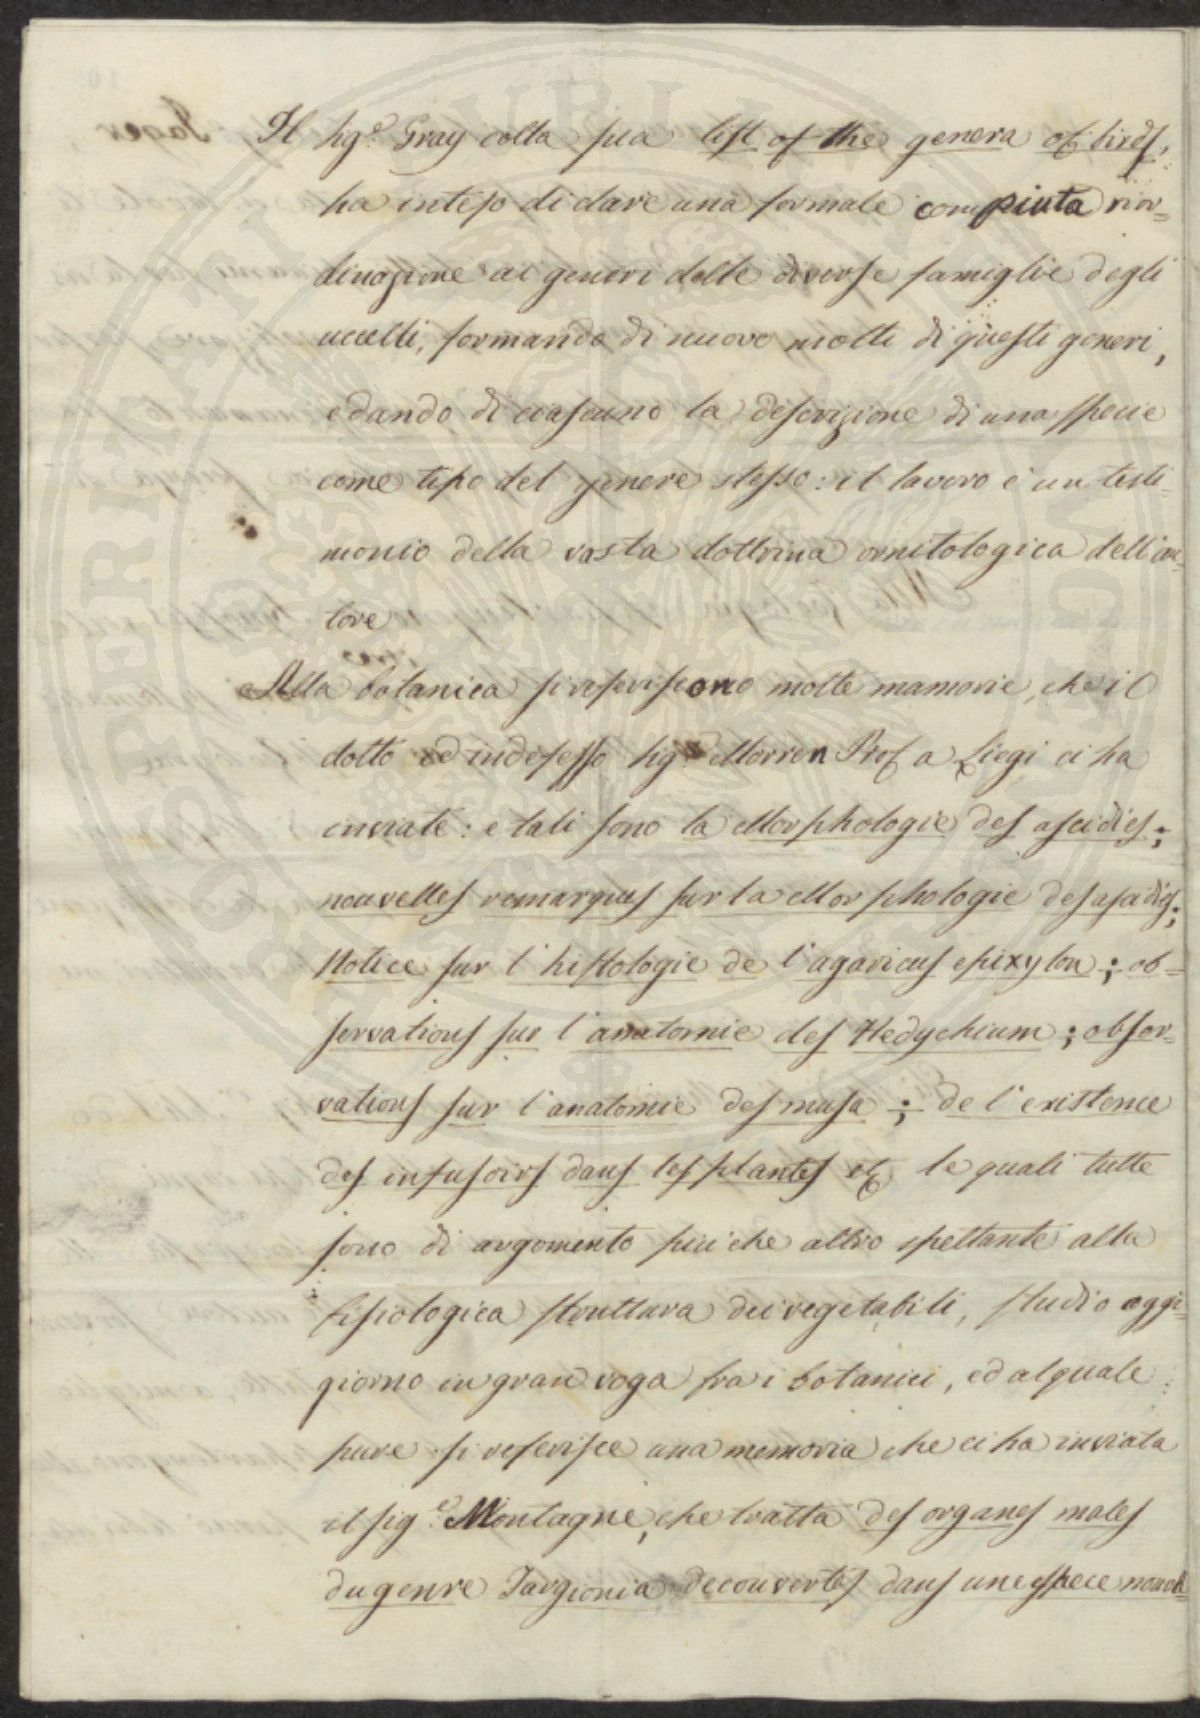 Il sig.e Gray colla sua list of the genera of birds,
ha inteso di dare una formale compiuta rior=
dinazione ai generi delle diverse famiglie degli
uccelli, formando di nuovo molti di questi generi,
e dando di ciascuno la descrizione di una specie
come tipo del genere stesso: il lavoro è un testi=
monio della vasta dottrina ornitologica dell'au=
tore
Alla botanica si riferiscono molte mamorie, che il
dotto ed indefesso sig.e Morren Prof. a Liegi ci ha
inviate: e tali sono la Morphologie des ascidies;
nouvelles remarques sur la Morphologie des ascidies;
Notice sur l'histologie de l'agaricus epixylon; ob=
servations sur l'anatomie des Hedychium; obser=
vations sur l'anatomie des musa; de l'existence
des infusoirs dans les plantes etc le quali tutte
sono di argomento più che altro spettante alla
fisiologica struttura dei vegetabili, studio oggi=
giorno in gran voga fra i botanici, ed al quale
pure si riferisce una memoria che ci ha inviata
il sig.e Montagne, che tratta des organes males
du genre Targionia decouvertes dans une espece nouvel=